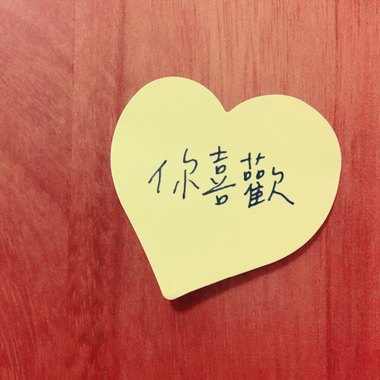 你喜歡